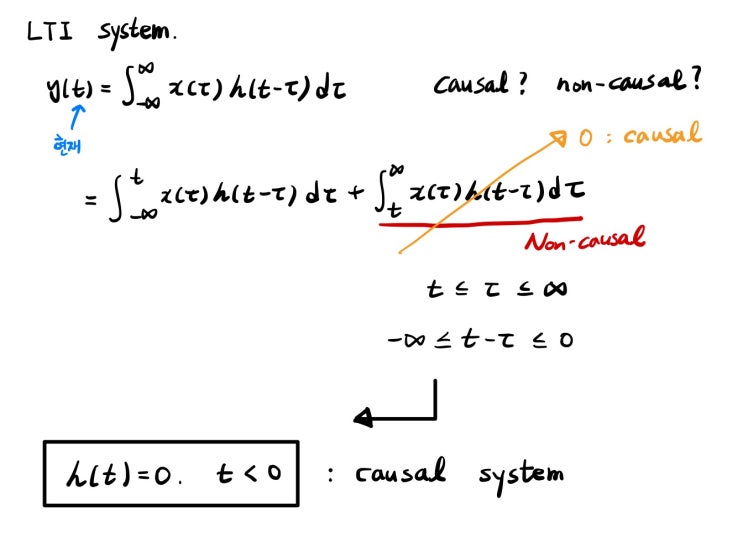 LTI system.
y(t) = ∫_{-∞}^{∞} x(τ) h(t-τ) dτ causal? non-causal?
현재
0 : causal
= ∫_{-∞}^{t} x(τ) h(t-τ) dτ + ∫_{t}^{∞} x(τ) h(t-τ) dτ
Non-causal
t ≤ τ ≤ ∞
-∞ ≤ t-τ ≤ 0
h(t)=0. t < 0 : causal system